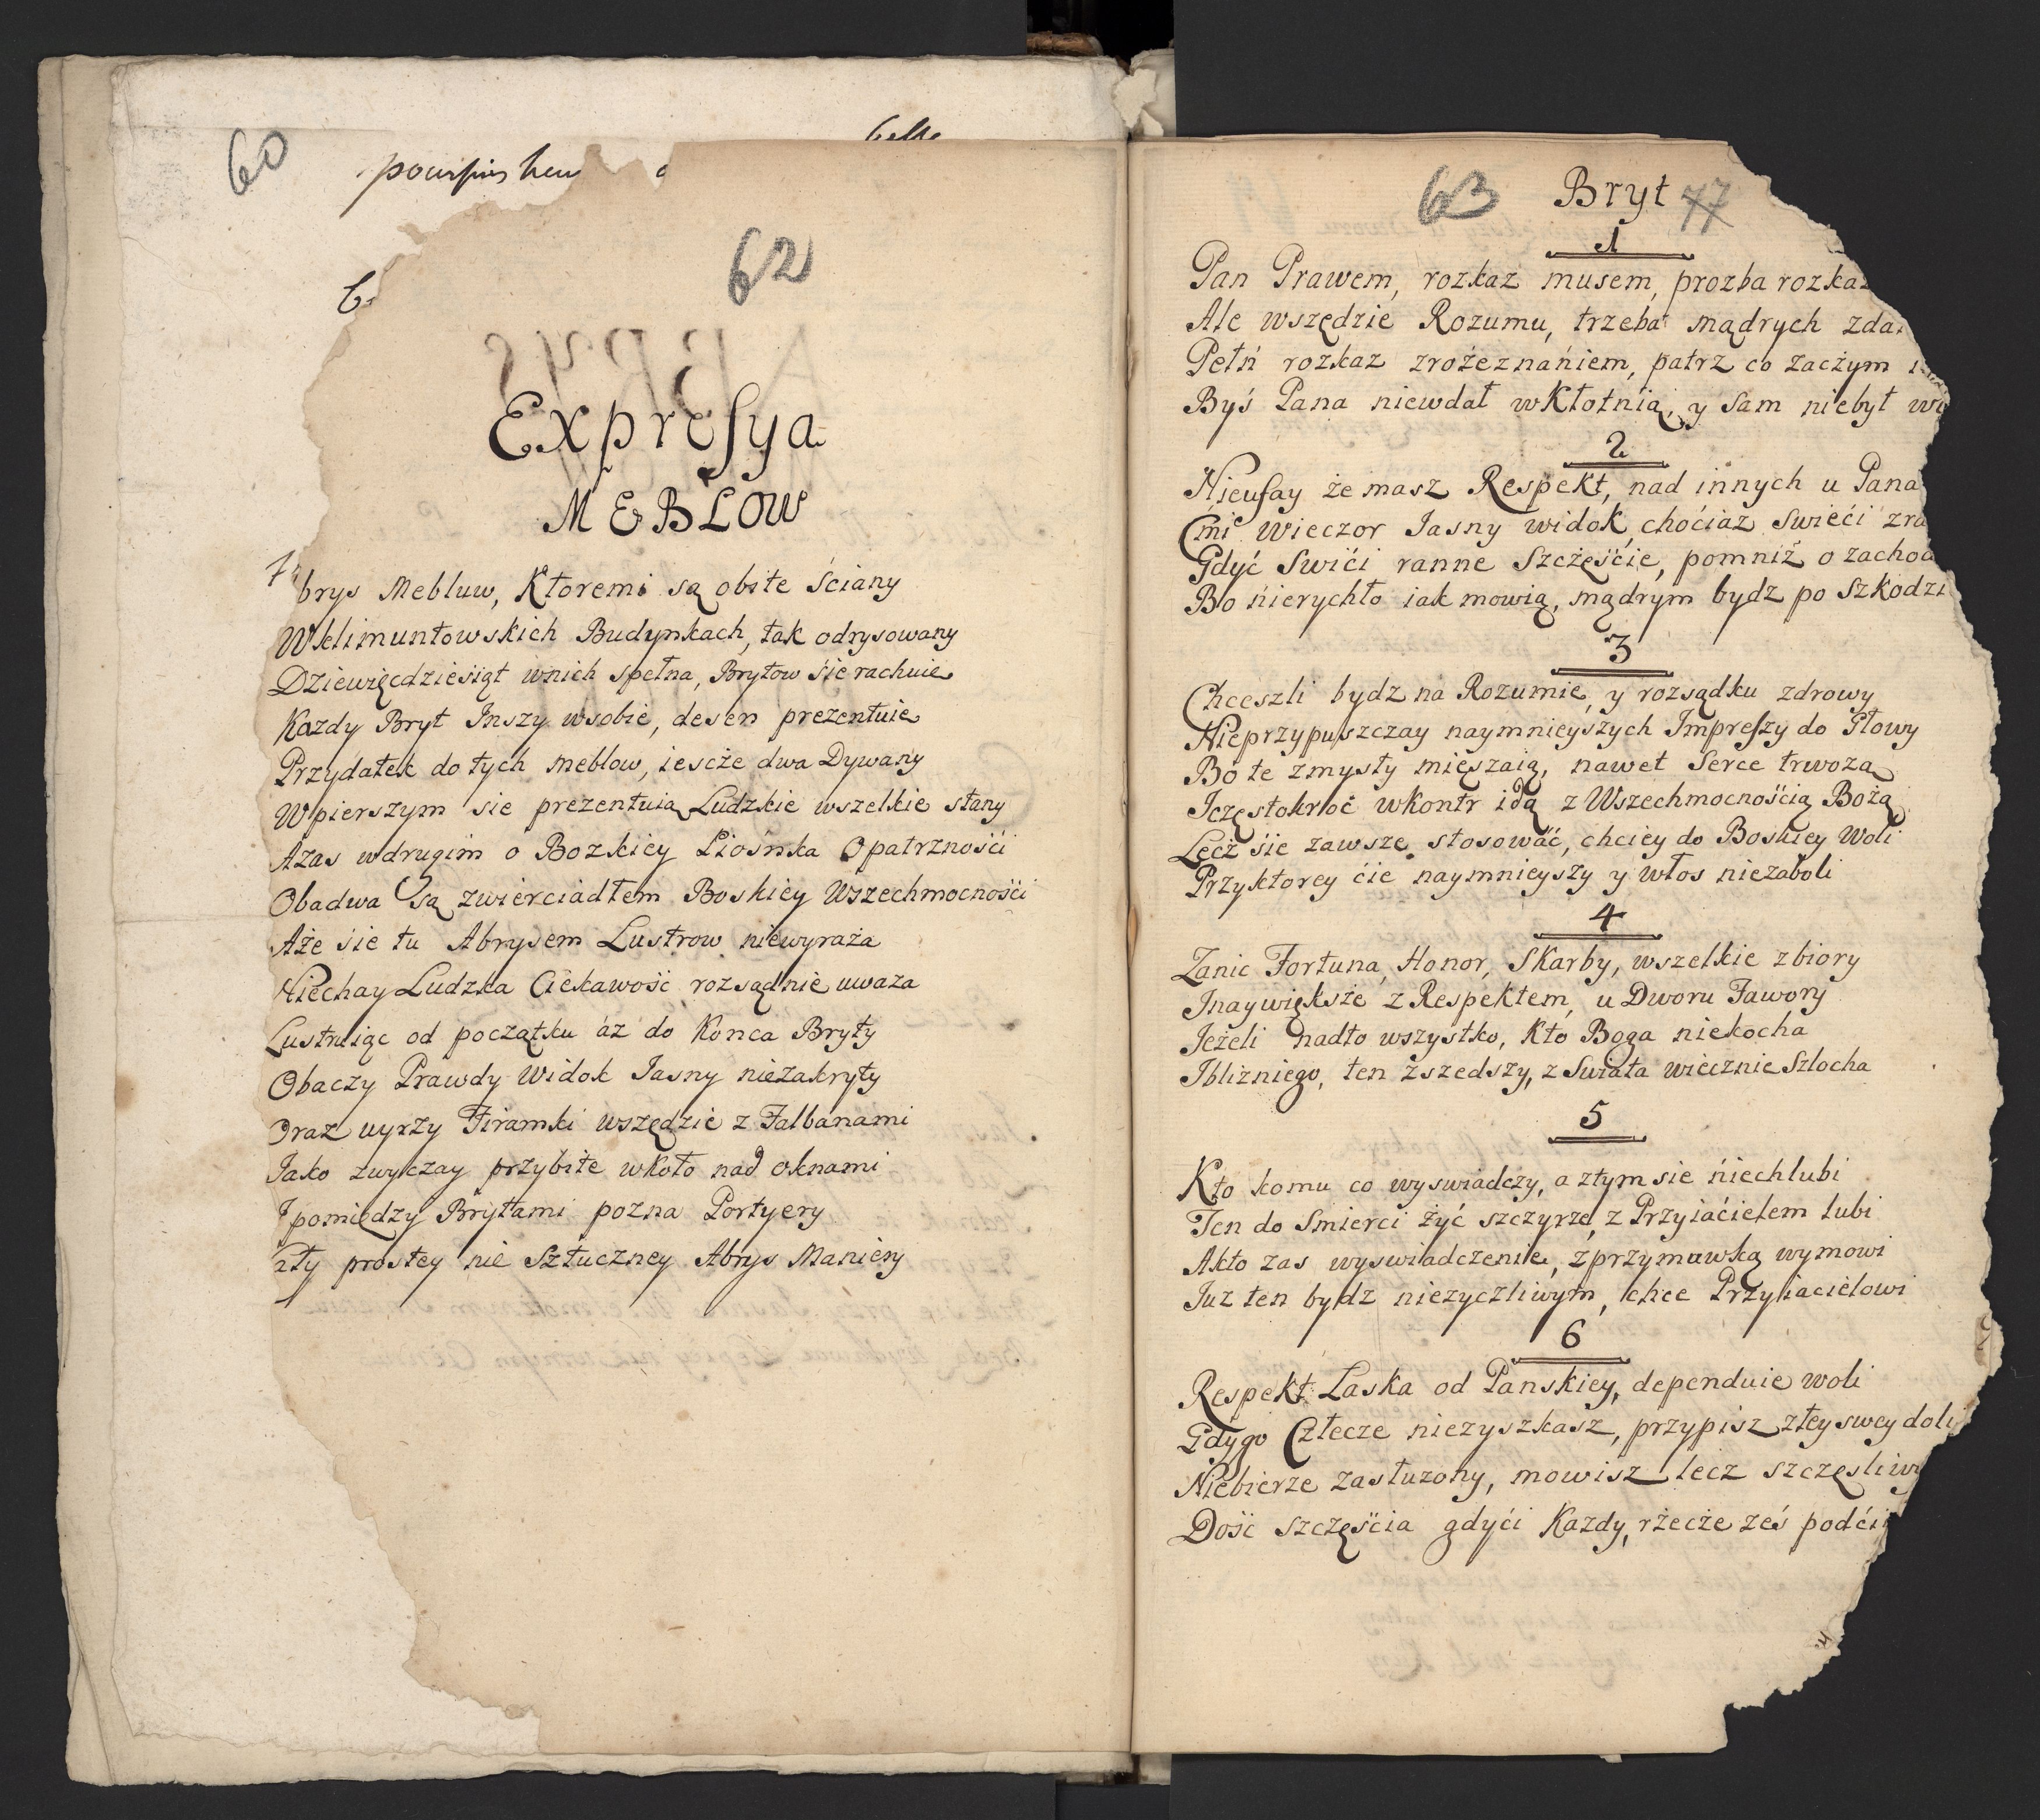 60
62
Expresya
MEBLOW
brys Mebluw, Ktoremi są obite ściany
Wklimuntowskich Budynkach, tak odrysowany
Dziewięcdzieśiąt wnich spełna, Brytow śie rachuie
Kazdy Bryt Inszy wsobie, desen prezentuie
Przydatek do tych meblow, iescże dwa Dywany
Wpierszym sie prezentuią Ludzkie wszelkie stany
Azas wdrugim o Bozkiey Piośnka Opatrznośći
Obadwa są zwierciadłem Boskiey Wszechmocnośći
Aże śie tu Abrysem Lustrow niewyraża
Niechay Ludzka Ciekawość rozsądnie uwaza
Lustruiąc od początku áz do Konca Bryty
Obaczy Prawdy Widok Iasny niezakryty
Oraz uyrzy Firamki wszędzie z Falbanami
Iako zwyczay przybite wkoło nad oknami
I pomiędzy Brytami pozna Portyery
zty prostey nie Sztuczney Abrys Maniery
63 Bryt 77
1
Pan Prawem, rozkaz musem, prozba rozkaz
Ale wszędzie Rozumu, trzeba mądrych zda
Pełń rozkaz zrożeznańiem, patrz co zaczym
Byś Pana niewdał wKłotnią, y sam niebył
2
Nieufay że masz Respekt, nad innych u Pana
Cmi Wieczor Iasny widok, choćiaz swieći zra
Gdyć Swići ranne Szczęśćie, pomniź o zachod
Bo nierychło iak mowią, mądrym bydz po Szkodzi
3
Chceszli bydz na Rozumie, y rozsądku zdrowy
Nieprzypuszczay naymnieyszych Impreszy do Głowy
Bo te zmysły mięszaią, nawet Serce trwozą
Iczęstokroć wKontr idą z Wszechmocnośćią Bożą
Lecż śie zawsze stosowáć, chciey do Boskiey Woli
Przyktorey ćie naymnieyszy y włos niezaboli
4
Zanic Fortuna, Honor, Skarby, wszelkie zbiory
Inaywięksże z Respektem, u Dworu Fawory
Jeżeli nadto wszystko, Kto Boga niekocha
Iblizniego, ten zszedszy, z Swiata wiecznie Szlocha
5
Kto komu co wyswiadczy, a ztym sie niechlubi
Ten do Smierci żyć szczyrze, z Przyiaćielem lubi
Akto zas wyswiadczenie, zprzymuwką wymowi
Iuz ten bydz niezyczliwym, chce Przyiacielowi
6
Respekt Laska od Panskiey, dependuie woli
Gdygo Człecze niezyszkasz, przypisz złey swey doli
Niebierze zasłuzony, mowisz lecz szczęsliwy
Dość szczęśćia gdyći Kazdy, rżecże ześ podći